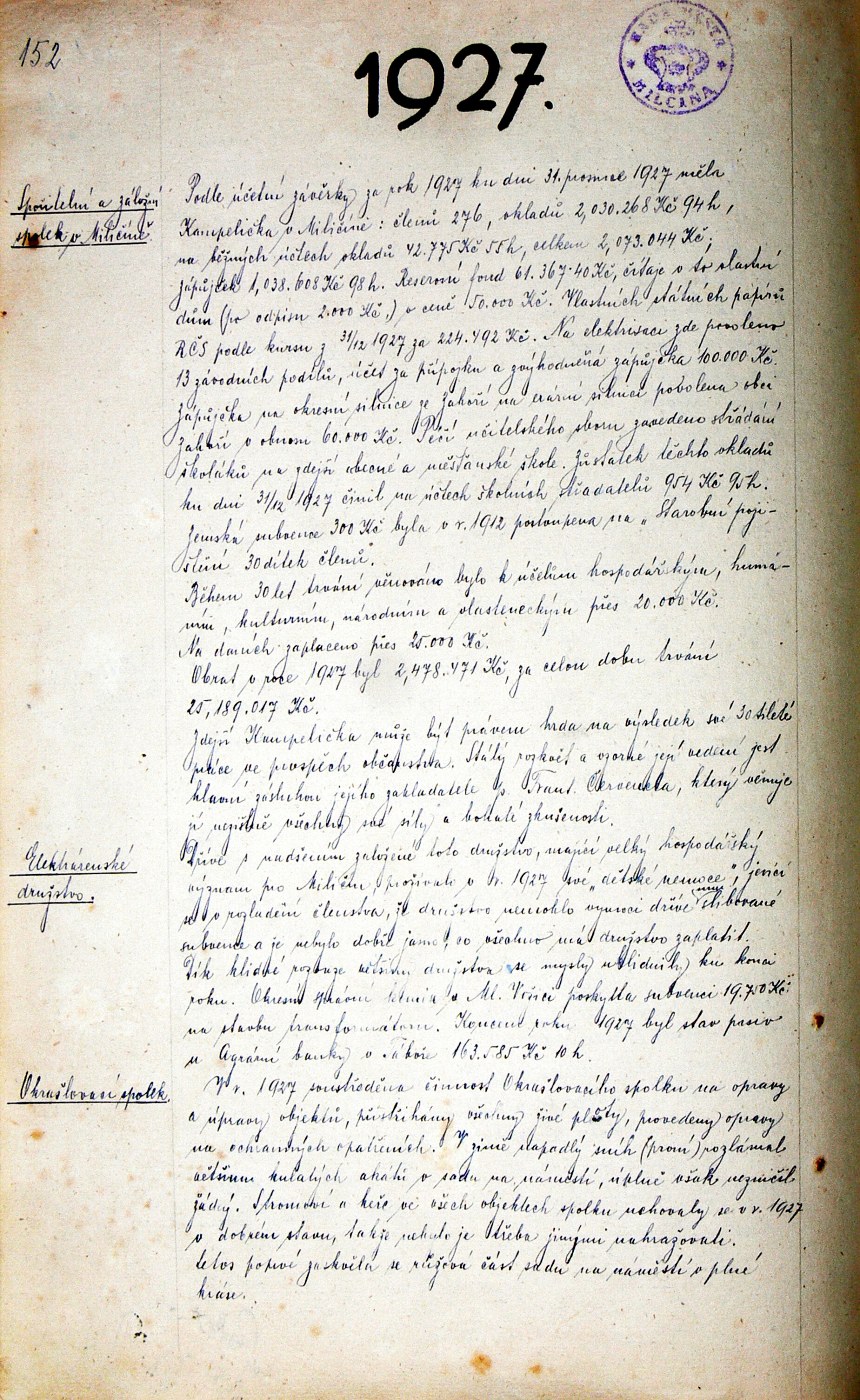 152
1927.
RADA MĚSTA
MILČÍNA
Spořitelní a záložní
spolek v Miličíně.
Podle účetní závěrky za rok 1927 ku dni 31. prosince 1927 měla
Kampelička v Miličíně: členů 276, vkladů 2,030.268 Kč 94 h,
na běžných účtech vkladů 42.775 Kč 55 h, celkem 2,073.044 Kč;
zápůjček 1,038.608 Kč 98 h. Reservní fond 61.367·40 Kč, čítaje v to vlastní
dům (po odpisu 2.000 Kč.) v ceně 50.000 Kč. Vlastních státních papírů
RČS podle kursu z 31/12 1927 za 224.492 Kč. Na elektrisaci zde povoleno
13 závodních podílů, účet za přípojku a zvýhodněná zápůjčka 100.000 Kč.
Zápůjčka na okresní silnice ze Zahoří na erární silnici povolena obci
Zahoří v obnosu 60.000 Kč. Péčí učitelského sboru zavedeno střádání
školáků na zdejší obecné a měšťanské škole. Zůstatek těchto vkladů
ku dni 31/12 1927 činil na účtech školních střadatelů 954 Kč 95 h.
Zemská subvence 300 Kč byla v r. 1912 postoupena na „Starobní poji-
štění 30 dítek členů".
Během 30 let trvání věnováno bylo k účelům hospodářským, humá-
ním, kulturním, národním a vlasteneckým přes 20.000 Kč.
Na daních zaplaceno přes 25.000 Kč.
Obrat v roce 1927 byl 2,478.471 Kč, za celou dobu trvání
25,189.017 Kč.
Zdejší Kampelička může být právem hrda na výsledek své 30 tileté
práce ve prospěch občanstva. Stálý rozkvět a vzorné její vedení jest
hlavní zásluhou jejího zakladatele p. Frant. Července, který věnuje
jí nezištně všechny své síly a bohaté zkušenosti.
Elektrárenské
družstvo.
Dříve s nadšením založené toto družstvo, mající velký hospodářský
význam pro Miličín, prožívalo v r. 1927 své „dětské nemoce", jevící
se v rozladění členstva, že družstvo nemohlo vymoci dříve mu slibované
subvence a že nebylo dobře jasné, co všechno má družstvo zaplatit.
Dík klidné rozvaze většiny družstva se mysly uklidnily ku konci
roku. Okresní správní komise v Ml. Vožici poskytla subvenci 19.750 Kč
na stavbu transformátoru. Koncem roku 1927 byl stav pasiv
u Agrární banky v Táboře 163.585 Kč 10 h.
Okrašlovací spolek.
V r. 1927 soustředěna činnost Okrašlovacího spolku na opravy
a úpravy objektů, přistřihány všechny živé ploty, provedeny opravy
na ochranných opatřeních. V zimě napadlý sníh (první) rozlámal
většinu kulatých akátů v sadu na náměstí, úplně však nezničil
žádný. Stromoví a keře ve všech objektech spolku uchovaly se v r. 1927
v dobrém stavu, takže nebylo je třeba jinými nahražovati.
Letos poprvé zaskvěla se růžová část sadu na náměstí v plné
kráse.